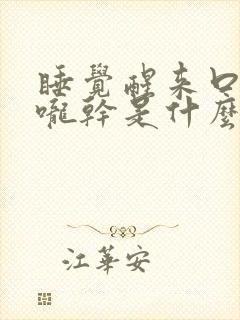 睡覺醒來口
嚨幹是什麼
江華安